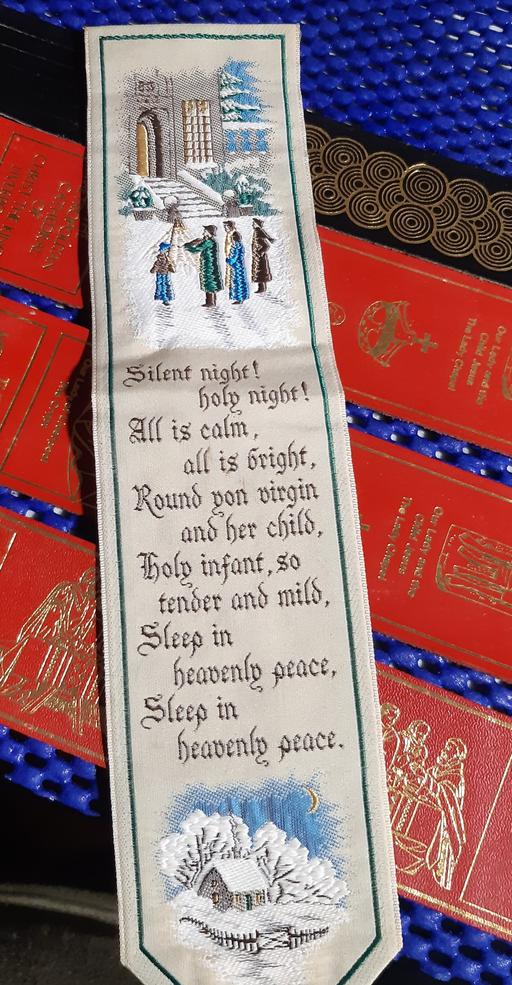 Silent night!
holy night!
All is calm,
all is bright,
Round yon virgin
and her child,
Holy infant, so
tender and mild,
Sleep in
heavenly peace,
Sleep in
heavenly peace.
CATHEDRAL
OF
CHRIST THE KING
Our Lady and the
Child Jesus
The Lady Chapel
Our Lady and the
Child Jesus
The Lady Chapel